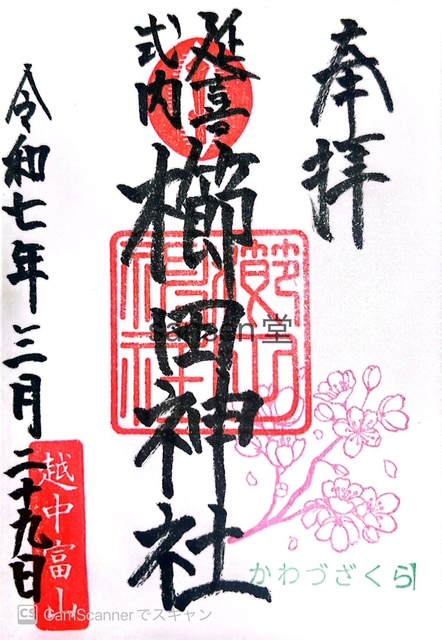 奉拝
延喜
式内
櫛田神社
令和七年三月二十九日
越中富山
かわづざくら
CS CamScannerでスキャン